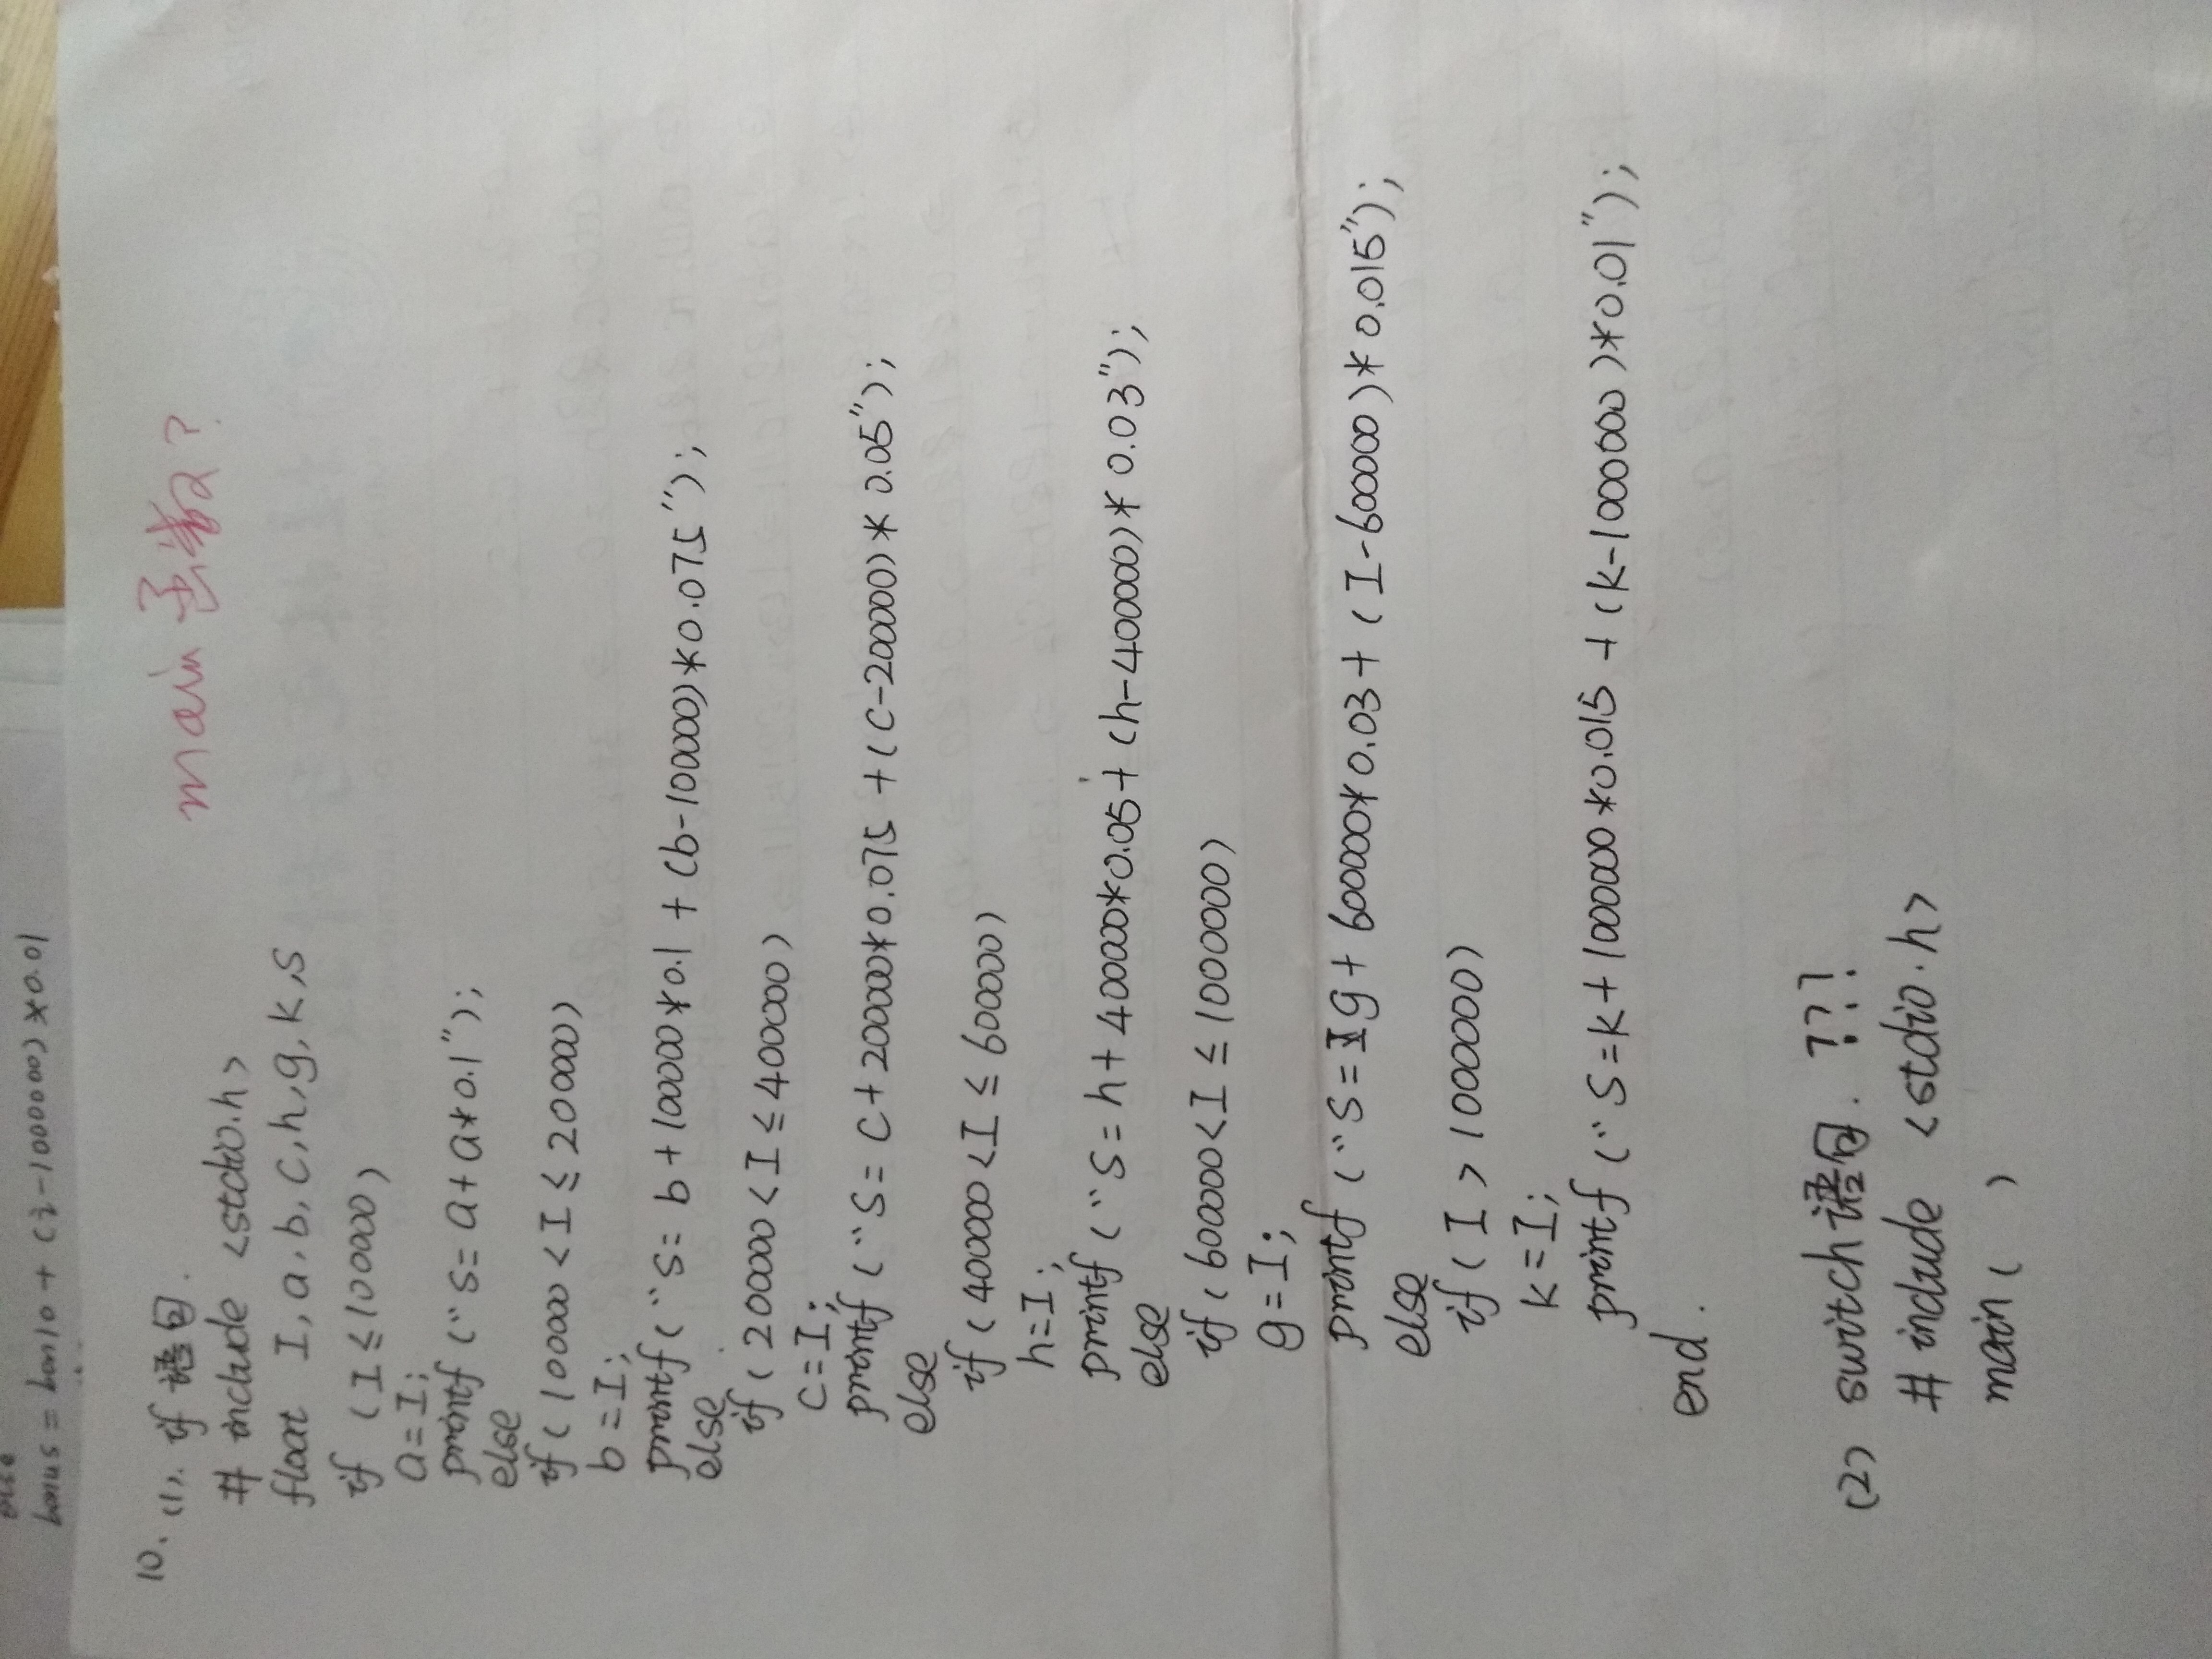 else
bonus = bon10 + (i-1000000)*0.01
10. (1). if 语句.
main 函数?
# include <stdio.h>
float I, a, b, c, h, g, k, s
if (I≤100000)
a=I;
printf ("s= a+a*0.1");
else
if(100000<I≤200000)
b=I;
printf("s= b+100000*0.1 + (b-100000)*0.075");
else
if(200000<I≤400000)
c=I;
printf ("s= c+200000*0.075 +(c-200000)* 0.05");
else
if(400000<I≤600000)
h=I;
printf ("s=h+400000*0.05+(h-400000)* 0.03");
else
if(600000<I≤1000000)
g=I;
printf ("s=g+600000*0.03+(I-600000)*0.015");
else
if(I>1000000)
k=I;
printf ("s=k+1000000*0.015 +(k-1000000)*0.01");
end.
(2) switch语句. ???
# include <stdio.h>
main( )